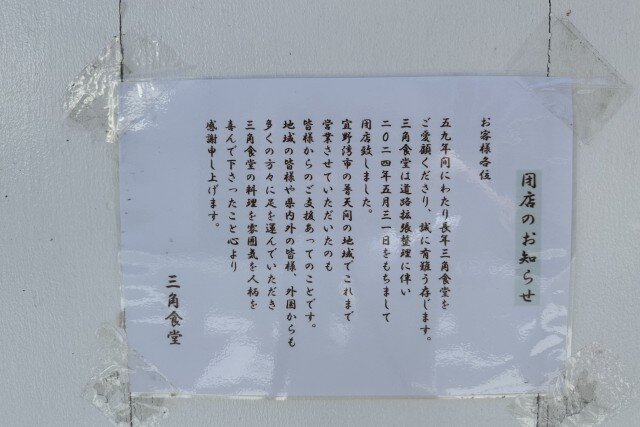 閉店のお知らせ
お客様各位
五九年間にわたり長年三角食堂を
ご愛顧くださり、誠に有難う存じます。
三角食堂は道路拡張整理に伴い
二〇二四年五月三一日をもちまして
閉店致しました。
宜野湾市の普天間の地域でこれまで
営業させていただいたのも
皆様からのご支援あってのことです。
地域の皆様や県内外の皆様、外国からも
多くの方々に足を運んでいただき
三角食堂の料理を雰囲気を人柄を
喜んで下さったこと心より
感謝申し上げます。
三角食堂